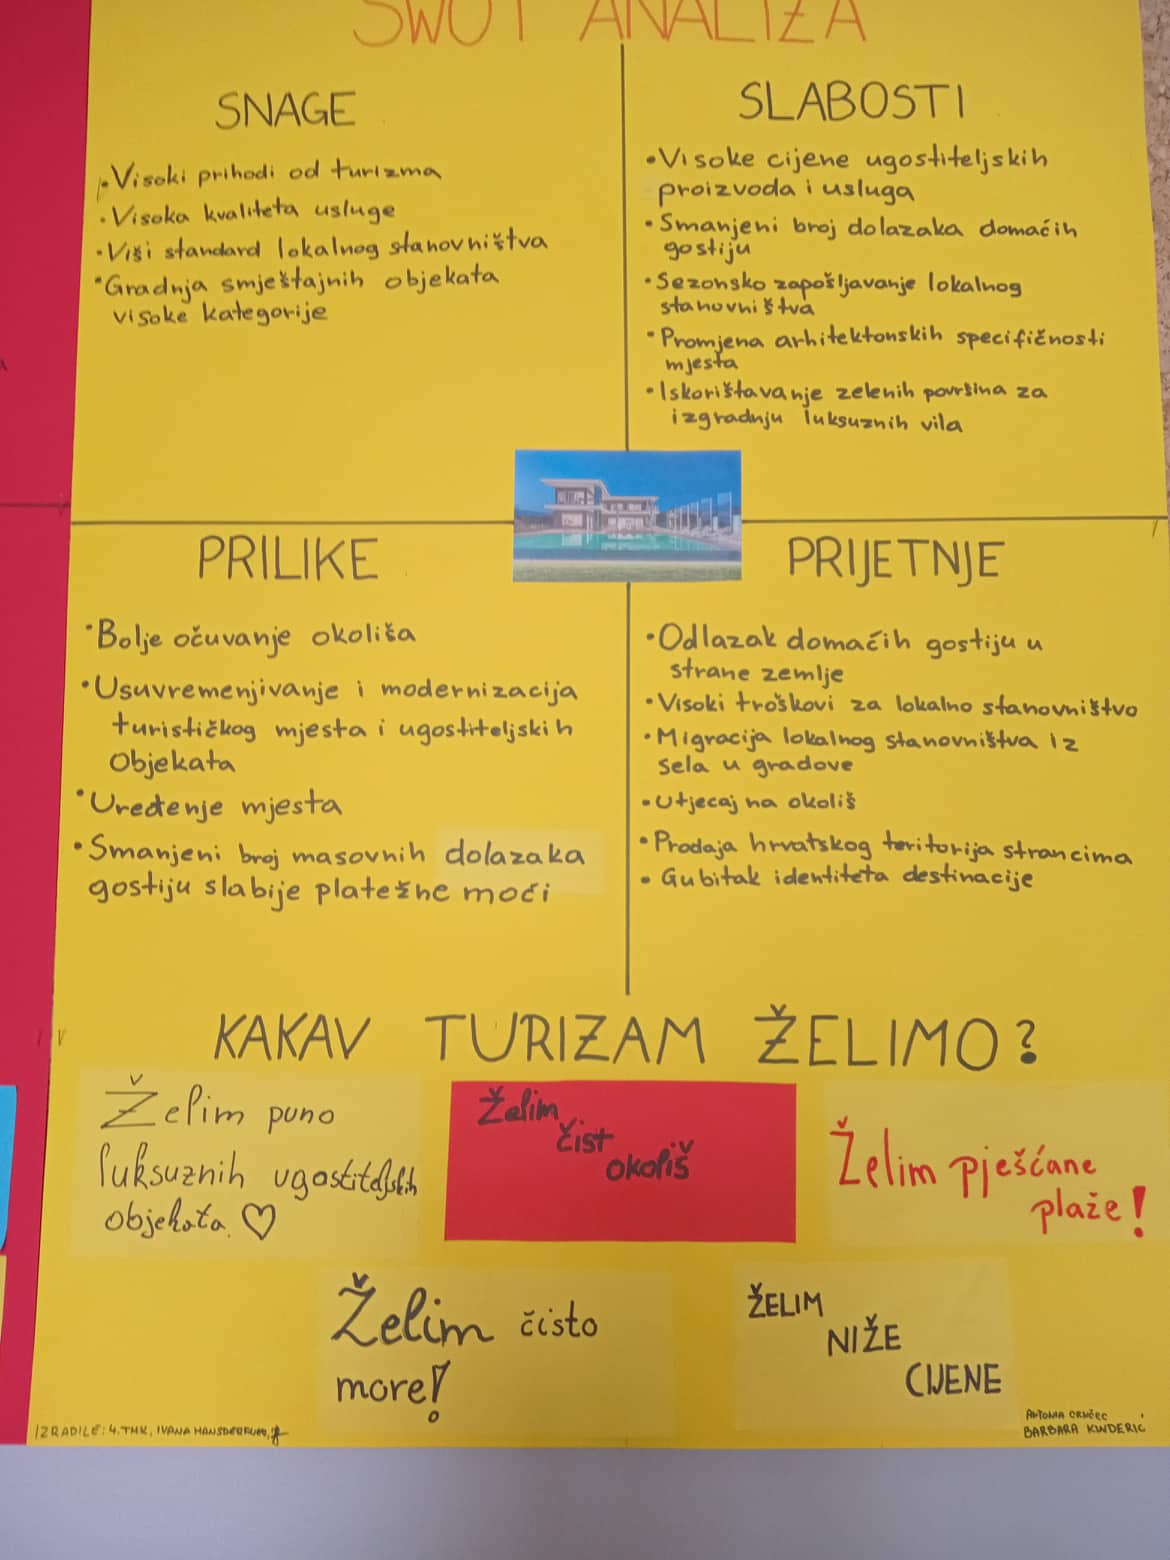 SWOT ANALIZA
SNAGE
• Visoki prihodi od turizma
• Visoka kvaliteta usluge
• Viši standard lokalnog stanovništva
• Gradnja smještajnih objekata
visoke kategorije
SLABOSTI
• Visoke cijene ugostiteljskih
proizvoda i usluga
• Smanjeni broj dolazaka domaćih
gostiju
• Sezonsko zapošljavanje lokalnog
stanovništva
• Promjena arhitektonskih specifičnosti
mjesta
• Iskorištavanje zelenih površina za
izgradnju luksuznih vila
PRILIKE
• Bolje očuvanje okoliša
• Usuvremenjivanje i modernizacija
turističkog mjesta i ugostiteljskih
objekata
• Uređenje mjesta
• Smanjeni broj masovnih dolazaka
gostiju slabije platežne moći
PRIJETNJE
• Odlazak domaćih gostiju u
strane zemlje
• Visoki troškovi za lokalno stanovništvo
• Migracija lokalnog stanovništva iz
sela u gradove
• Utjecaj na okoliš
• Prodaja hrvatskog teritorija strancima
• Gubitak identiteta destinacije
KAKAV TURIZAM ŽELIMO?
Želim puno
luksuznih ugostiteljskih
objekata. ♡
Želim
čist
okoliš
Želim pješćane
plaže!
Želim čisto
more!
ŽELIM
NIŽE
CIJENE
IZRADILE: 4. THK, IVANA
ANTONIA
BARBARA